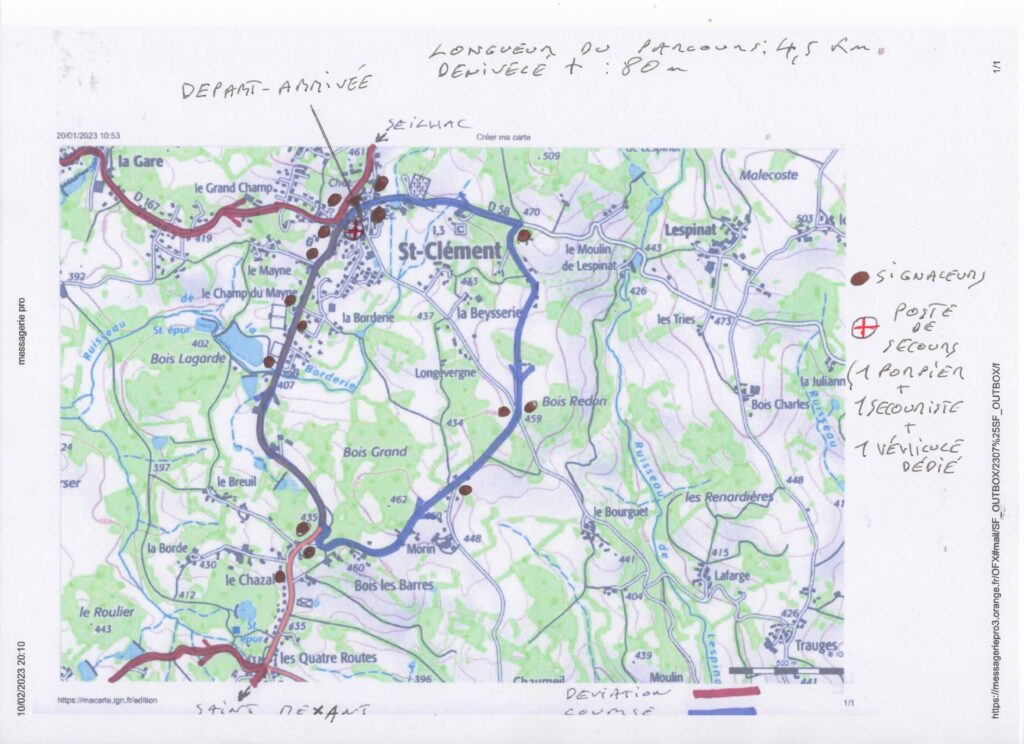 LONGUEUR DU PARCOURS: 4,5 Km.
DENIVELÉ + : 80 m
1/1
DEPART-ARRIVÉE
SEILHAC
20/01/2023 10:53
Créer ma carte
461
509
la Gare
Malecoste
le Grand Champ
D 167
D 58
470
503
419
1,3
C
Lespinat
St-Clément
le Moulin
de Lespinat
443
392
le Mayne
413
426
le Champ du Mayne
la Borderie
437
la Beysserie
les Tries
473
St épur
402
Ruisseau
de
la
Borderie
Bois Lagarde
407
Longevergne
la Juliann
Bois Redon
459
Bois Charles
Ruisseau
434
Bois Grand
397
le Breuil
462
448
les Renardières
435
460
le Bourguet
Ruisseau de
la Borde
430
Morin
448
460
441
415
le Chazal
Bois les Barres
Lafarge
412
404
le Roulier
443
St
épur
435
426
Trauges
les Quatre Routes
439
Lespina
396
Chaumeil
Moulin
500 m
https://macarte.ign.fr/edition
1/1
SAINT MEXANT
DEVIATION
COURSE
SIGNALEURS
POSTE
DE
SECOURS
(1 POMPIER
+
1 SECOURISTE
+
1 VÉHICULE
DÉDIÉ
messagerie pro
10/02/2023 20:10
https://messageriepro3.orange.fr/OFX/#mail/SF_OUTBOX/2307%25SF_OUTBOX/f